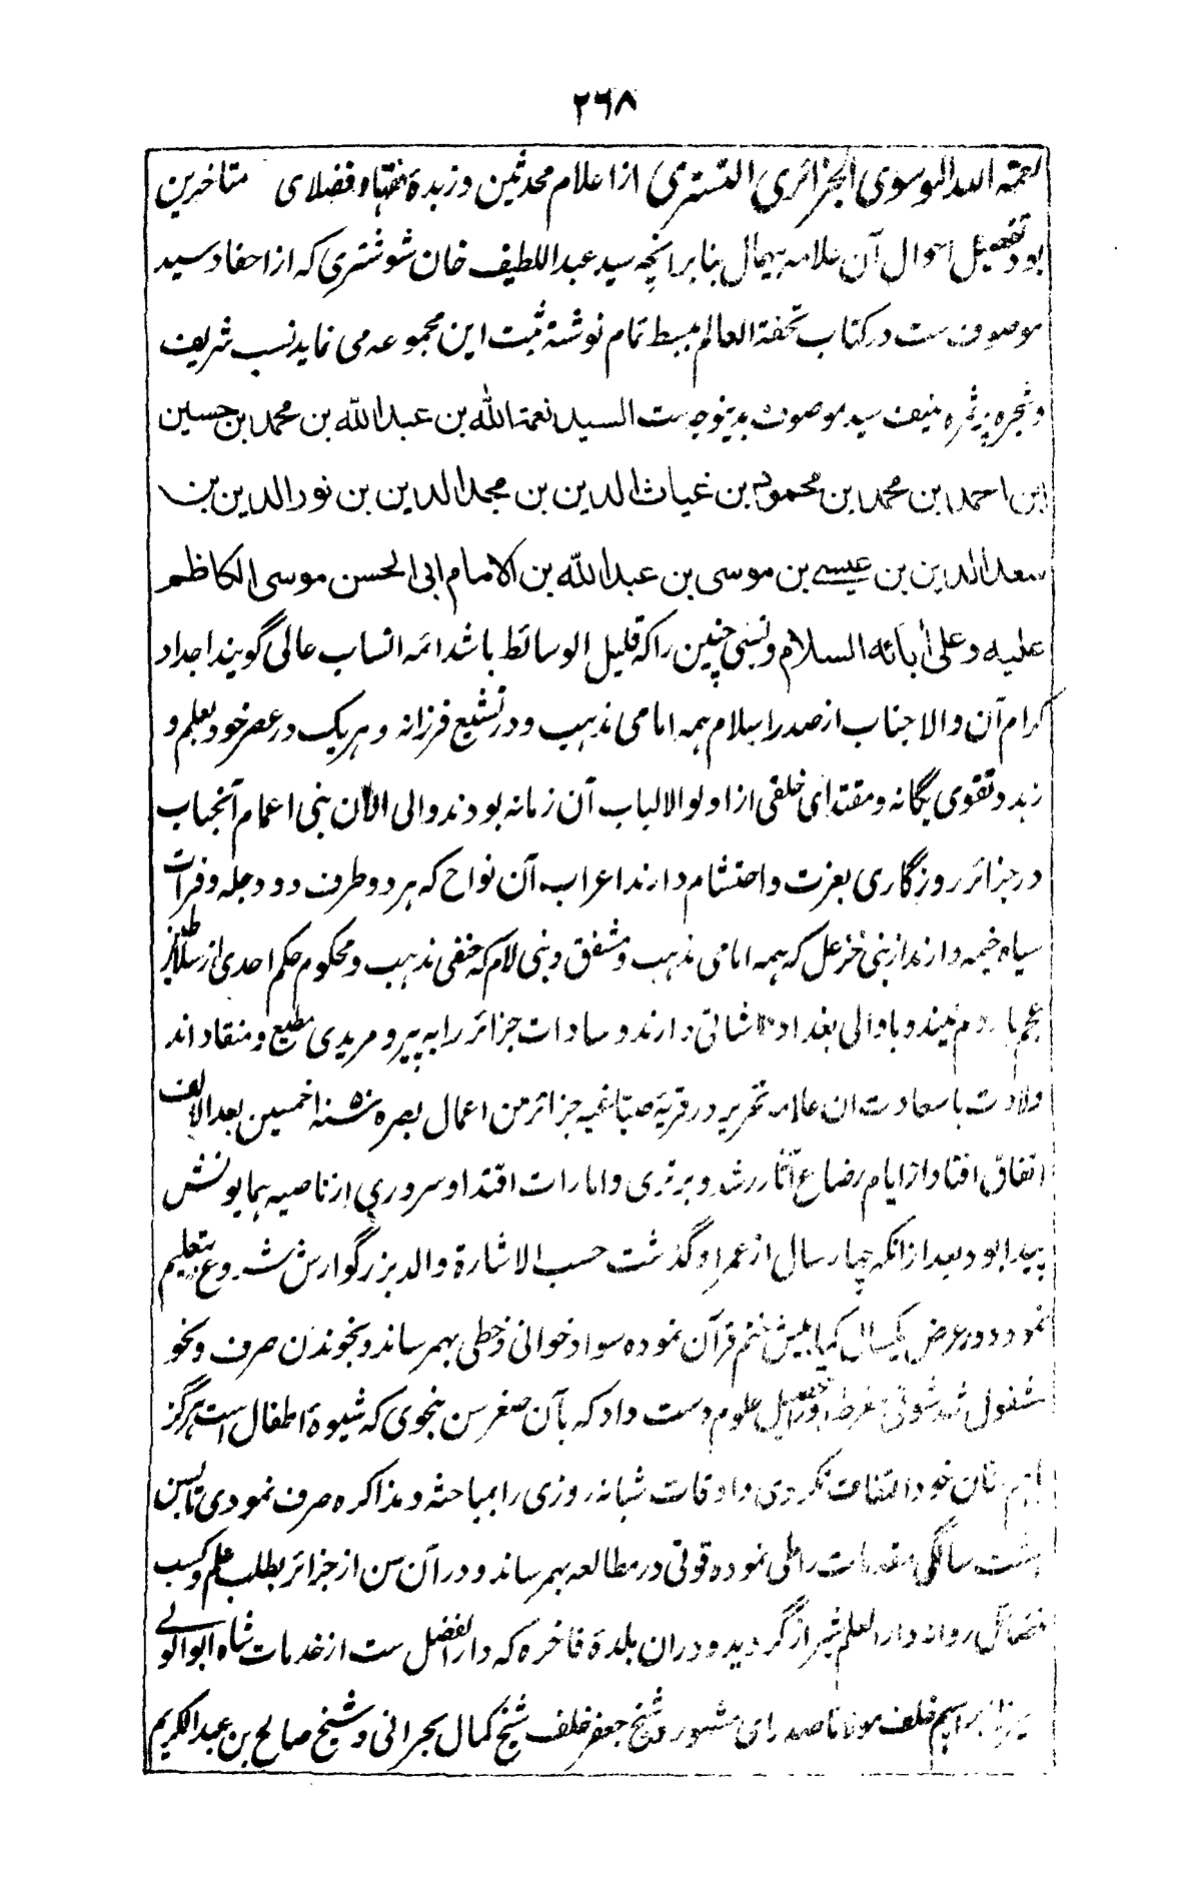 ۲۶۸
نعمة الله الموسوی الجزائری التستری از اعلام محدثین و زبدهٔ فقها و فضلای متاخرین
بود تفصیل احوال آن علامه بیهمال بنا بر انچه سید عبداللطیف خان شوشتری که از احفاد سید
موصوف ست در کتاب تحفة العالم ببسط تمام نوشته ثبت این مجموعه می نماید نسب شریف
و شجره پرثمره منیف سید موصوف بدینوجه ست السید نعمة الله بن عبدالله بن محمد بن حسین
ابن احمد بن محمد بن محمود بن غیاث الدین بن مجدالدین بن نورالدین بن
سعدالدین بن عیسے بن موسی بن عبدالله بن الامام ابی الحسن موسی الکاظم
علیه و علیٰ اٰبائه السلام و نسبی چنین را که قلیل الوسائط باشد ائمه انساب عالی گویند اجداد
کرام آن والا جناب از صدر اسلام همه امامی مذهب و در تشیع فرزانه و هر یک در عصر خود بعلم و
زهد و تقوی یگانه و مقتدای خلقی از اولو الالباب آن زمانه بودند و الی الان بنی اعمام آنجناب
در جزائر روزگاری بعزت و احتشام دارند اعراب آن نواح که هر دو طرف دو دجله و فرات
سیاه خیمه دارند از بنی خزعل که همه امامی مذهب و مشفق و بنی لام که حنفی مذهب و محکوم حکم احدی از سلاطین
عجم یا روم نیند و با والی بغداد شاتی دارند و سادات جزائر را به پیر و مریدی مطیع و منقاد اند
ولادت با سعادت ان علامه نحریر در قریهٔ صباغیه جزائر من اعمال بصره سنه ۱۰۵۰ خمسین بعد الالف
اتفاق افتاد از ایام رضاع آثار رشد و برتری و امارات اقتدا و سروری از ناصیه همایونش
پیدا بود بعد ازانکه چهار سال از عمر او گذشت حسب الاشارة والد بزرگوارش شروع بتعلیم
نمود و در عرض یکسال کمابیش ختم قرآن نموده سواد خوانی و خطی بهمرساند و بخوندن صرف و نحو
مشغول شد شوقی مفرط او را تحصیل علوم دست داد که بآن صغر سن بنحوی که شیوهٔ اطفال است هرگز
بهم سنان خود التفات نکردی و اوقات شبانه روزی را بمباحثه و مذاکره صرف نمودی تا بسن
هشت سالگی مقدمات را طی نموده قوتی در مطالعه بهمرساند و در آن سن از جزائر بطلب علم و کسب
فضائل روانه دار العلم شیراز گردید و دران بلدهٔ فاخره که دار الفضل ست از خدمات شاه ابوالولے
میرزا ابراهیم خلف مولانا صدرای مشهور و شیخ جعفر خلف شیخ کمال بحرانی و شیخ صالح بن عبدالکریم